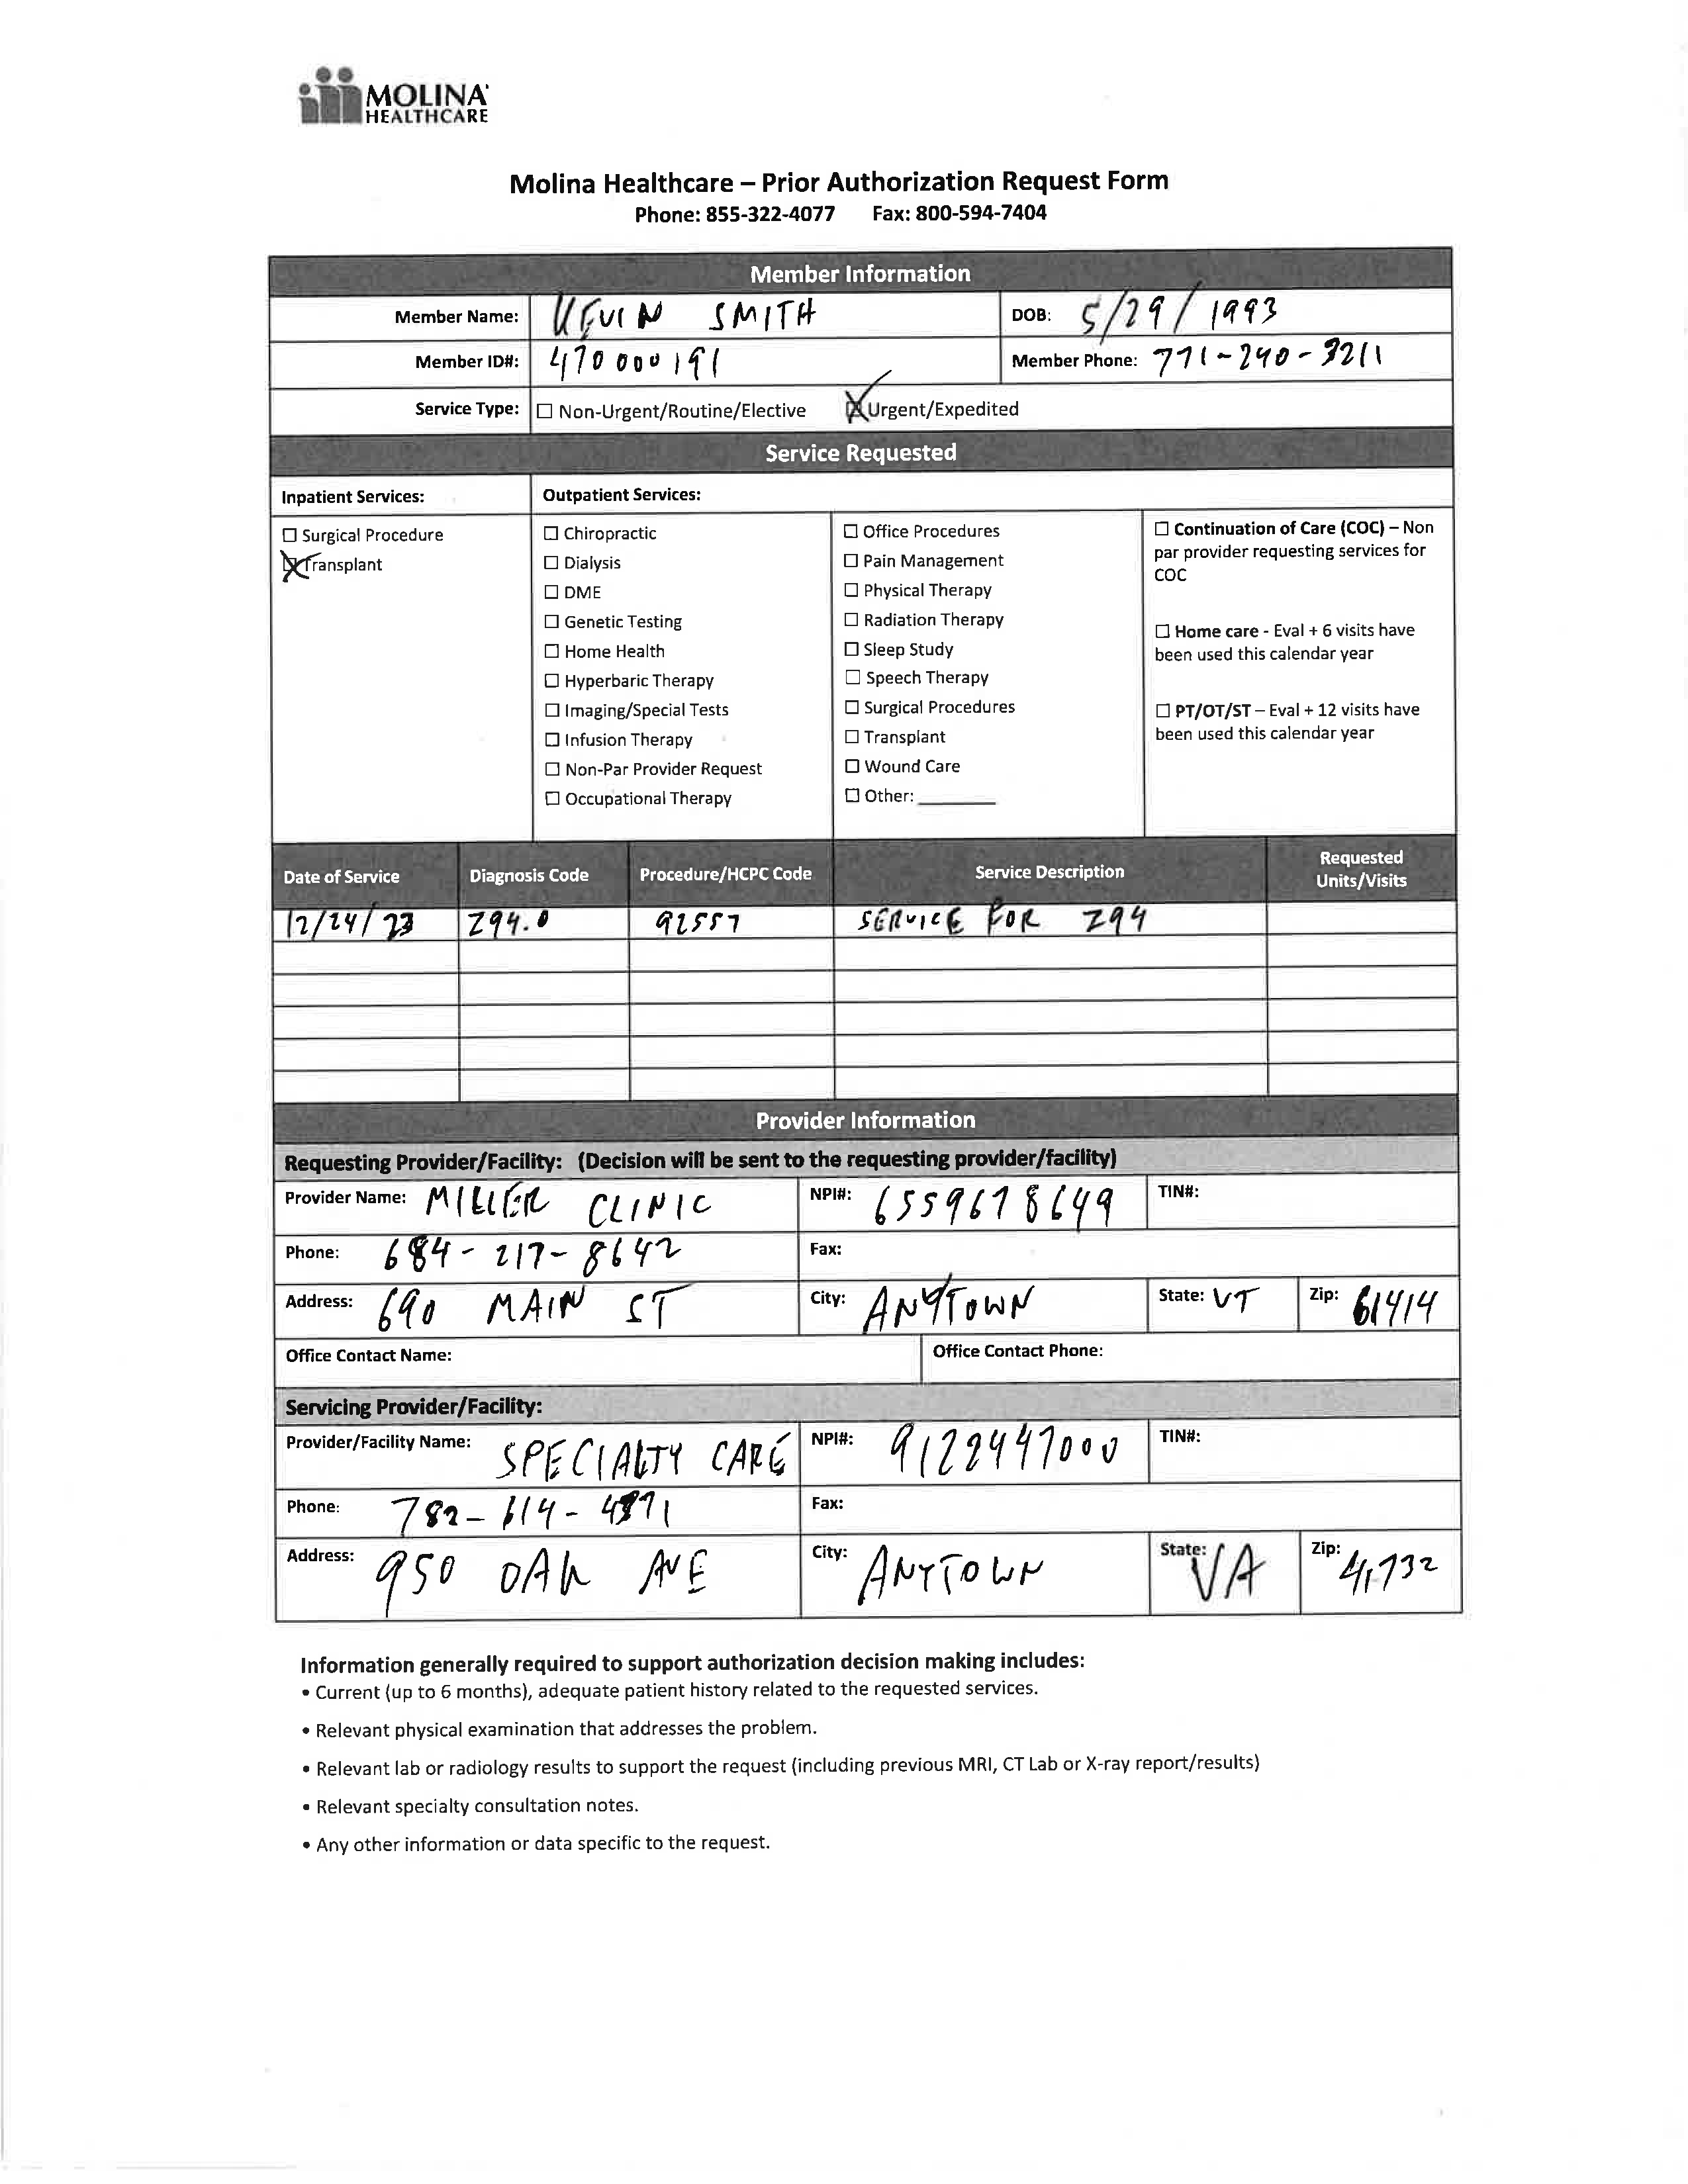 MOLINA
HEALTHCARE
Molina Healthcare – Prior Authorization Request Form
Phone: 855-322-4077 Fax: 800-594-7404
Member Information
Member Name: KEVIN SMITH DOB: 5/29/1993
Member ID#: 470000191 Member Phone: 771-240-3211
Service Type: ☐ Non-Urgent/Routine/Elective ☒ Urgent/Expedited
Service Requested
Inpatient Services: Outpatient Services:
☐ Surgical Procedure
☒ Transplant
☐ Chiropractic
☐ Dialysis
☐ DME
☐ Genetic Testing
☐ Home Health
☐ Hyperbaric Therapy
☐ Imaging/Special Tests
☐ Infusion Therapy
☐ Non-Par Provider Request
☐ Occupational Therapy
☐ Office Procedures
☐ Pain Management
☐ Physical Therapy
☐ Radiation Therapy
☐ Sleep Study
☐ Speech Therapy
☐ Surgical Procedures
☐ Transplant
☐ Wound Care
☐ Other: ________
☐ Continuation of Care (COC) – Non
par provider requesting services for
COC
☐ Home care - Eval + 6 visits have
been used this calendar year
☐ PT/OT/ST – Eval + 12 visits have
been used this calendar year
Date of Service Diagnosis Code Procedure/HCPC Code Service Description Requested Units/Visits
12/24/23 Z94.0 92557 SERVICE FOR Z94
Provider Information
Requesting Provider/Facility: (Decision will be sent to the requesting provider/facility)
Provider Name: MILLER CLINIC NPI#: 6559678649 TIN#:
Phone: 684-217-8642 Fax:
Address: 690 MAIN ST City: ANYTOWN State: VT Zip: 61414
Office Contact Name: Office Contact Phone:
Servicing Provider/Facility:
Provider/Facility Name: SPECIALTY CARE NPI#: 9122947000 TIN#:
Phone: Fax:
Address: 950 OAK AVE City: ANYTOWN State: VA Zip: 41732
Information generally required to support authorization decision making includes:
• Current (up to 6 months), adequate patient history related to the requested services.
• Relevant physical examination that addresses the problem.
• Relevant lab or radiology results to support the request (including previous MRI, CT Lab or X-ray report/results)
• Relevant specialty consultation notes.
• Any other information or data specific to the request.